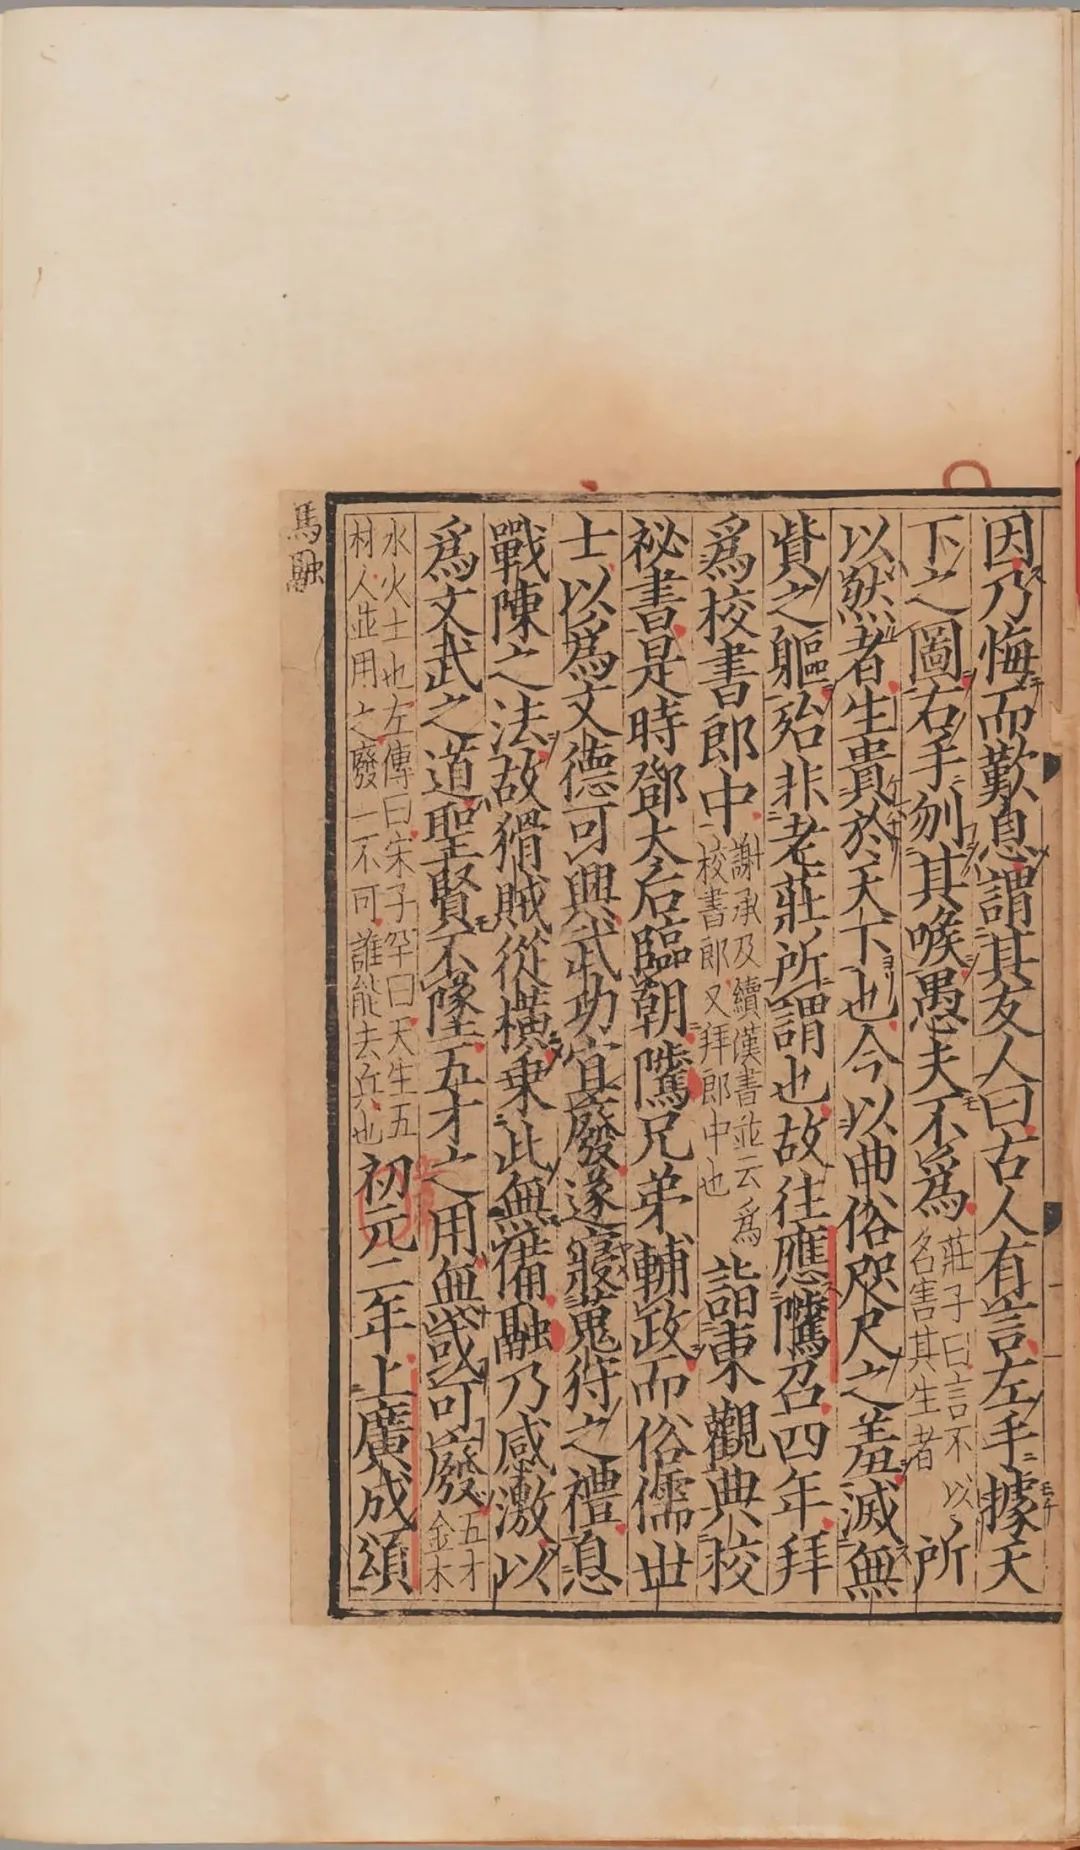 因乃悔而歎息謂其友人曰古人有言左手據天
下之圖右手刎其喉愚夫不爲莊子曰言不以名害其生者所
以然者生貴於天下也今以曲俗咫尺之羞滅無
貲之軀殆非老莊所謂也故往應騭召四年拜
爲校書郎中謝承及續漢書並云爲校書郎又拜郎中也詣東觀典校
祕書是時鄧太后臨朝騭兄弟輔政而俗儒世
士以爲文德可興武功宜廢遂寢蒐狩之禮息
戰陳之法故猾賊從橫乗此無備融乃感激以
爲文武之道聖賢不墜五才之用無或可廢五才金木
水火土也左傳曰宋子罕曰天生五材人並用之廢一不可誰能去兵也初元二年上廣成頌
馬融